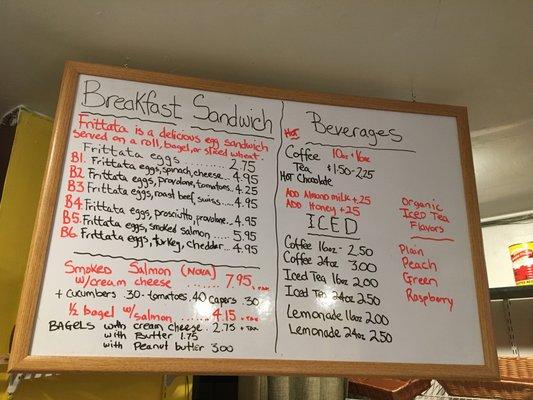 Breakfast Sandwich
Frittata is a delicious egg sandwich
served on a roll, bagel, or sliced wheat.
Frittata eggs .......... 2.75
B1. Frittata eggs, spinach, cheese... 4.95
B2 Frittata eggs, provolone, tomatoes. 4.25
B3 Frittata eggs, roast beef, swiss.... 4.95
B4 Frittata eggs, prosciutto, provolone.. 4.95
B5. Frittata eggs, smoked salmon 5.95
B6. Frittata eggs, turkey, cheddar... 4.95
Smoked Salmon (Nova)
w/cream cheese ........ 7.95 + TAX
+ cucumbers .30 - tomatoes .40 capers .30
1/2 bagel w/salmon ...... 4.15 + TAX
BAGELS with cream cheese . 2.75 + TAX
with Butter 1.75
with Peanut butter 3.00
Hot Beverages
Coffee 10oz + 16oz
Tea $1.50-2.25
Hot Chocolate
ADD Almond milk +.25
ADD Honey +.25
ICED
Coffee 16oz - 2.50
Coffee 24oz 3.00
Iced Tea 16oz 2.00
Iced Tea 24oz 2.50
Lemonade 16oz 2.00
Lemonade 24oz 2.50
Organic
Iced Tea
Flavors
Plain
Peach
Green
Raspberry